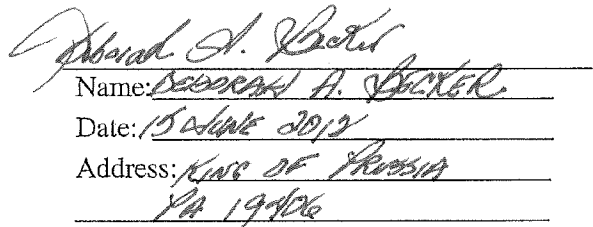 Deborah A. Becker
Name: DEBORAH A. BECKER
Date: 15 JUNE 2012
Address: KING OF PRUSSIA
PA 19406